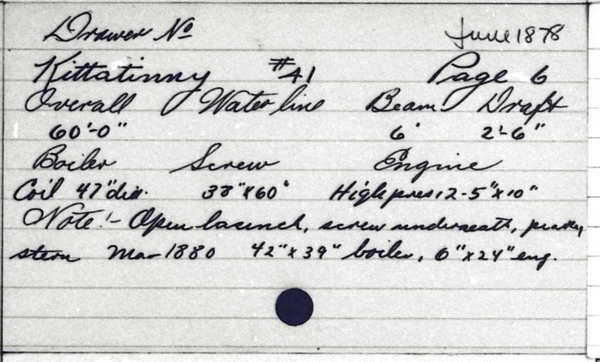 Drawer No June 1878
Kittatinny #41 Page 6
Overall Water line Beam Draft
60'-0" 6' 2'-6"
Boiler Screw Engine
Coil 47"dia. 38"x60" High pres 12-5"x10"
Note:- Open launch, screw underneath, peaky
stern Mar 1880 42"x39" boiler, 6"x24" eng.